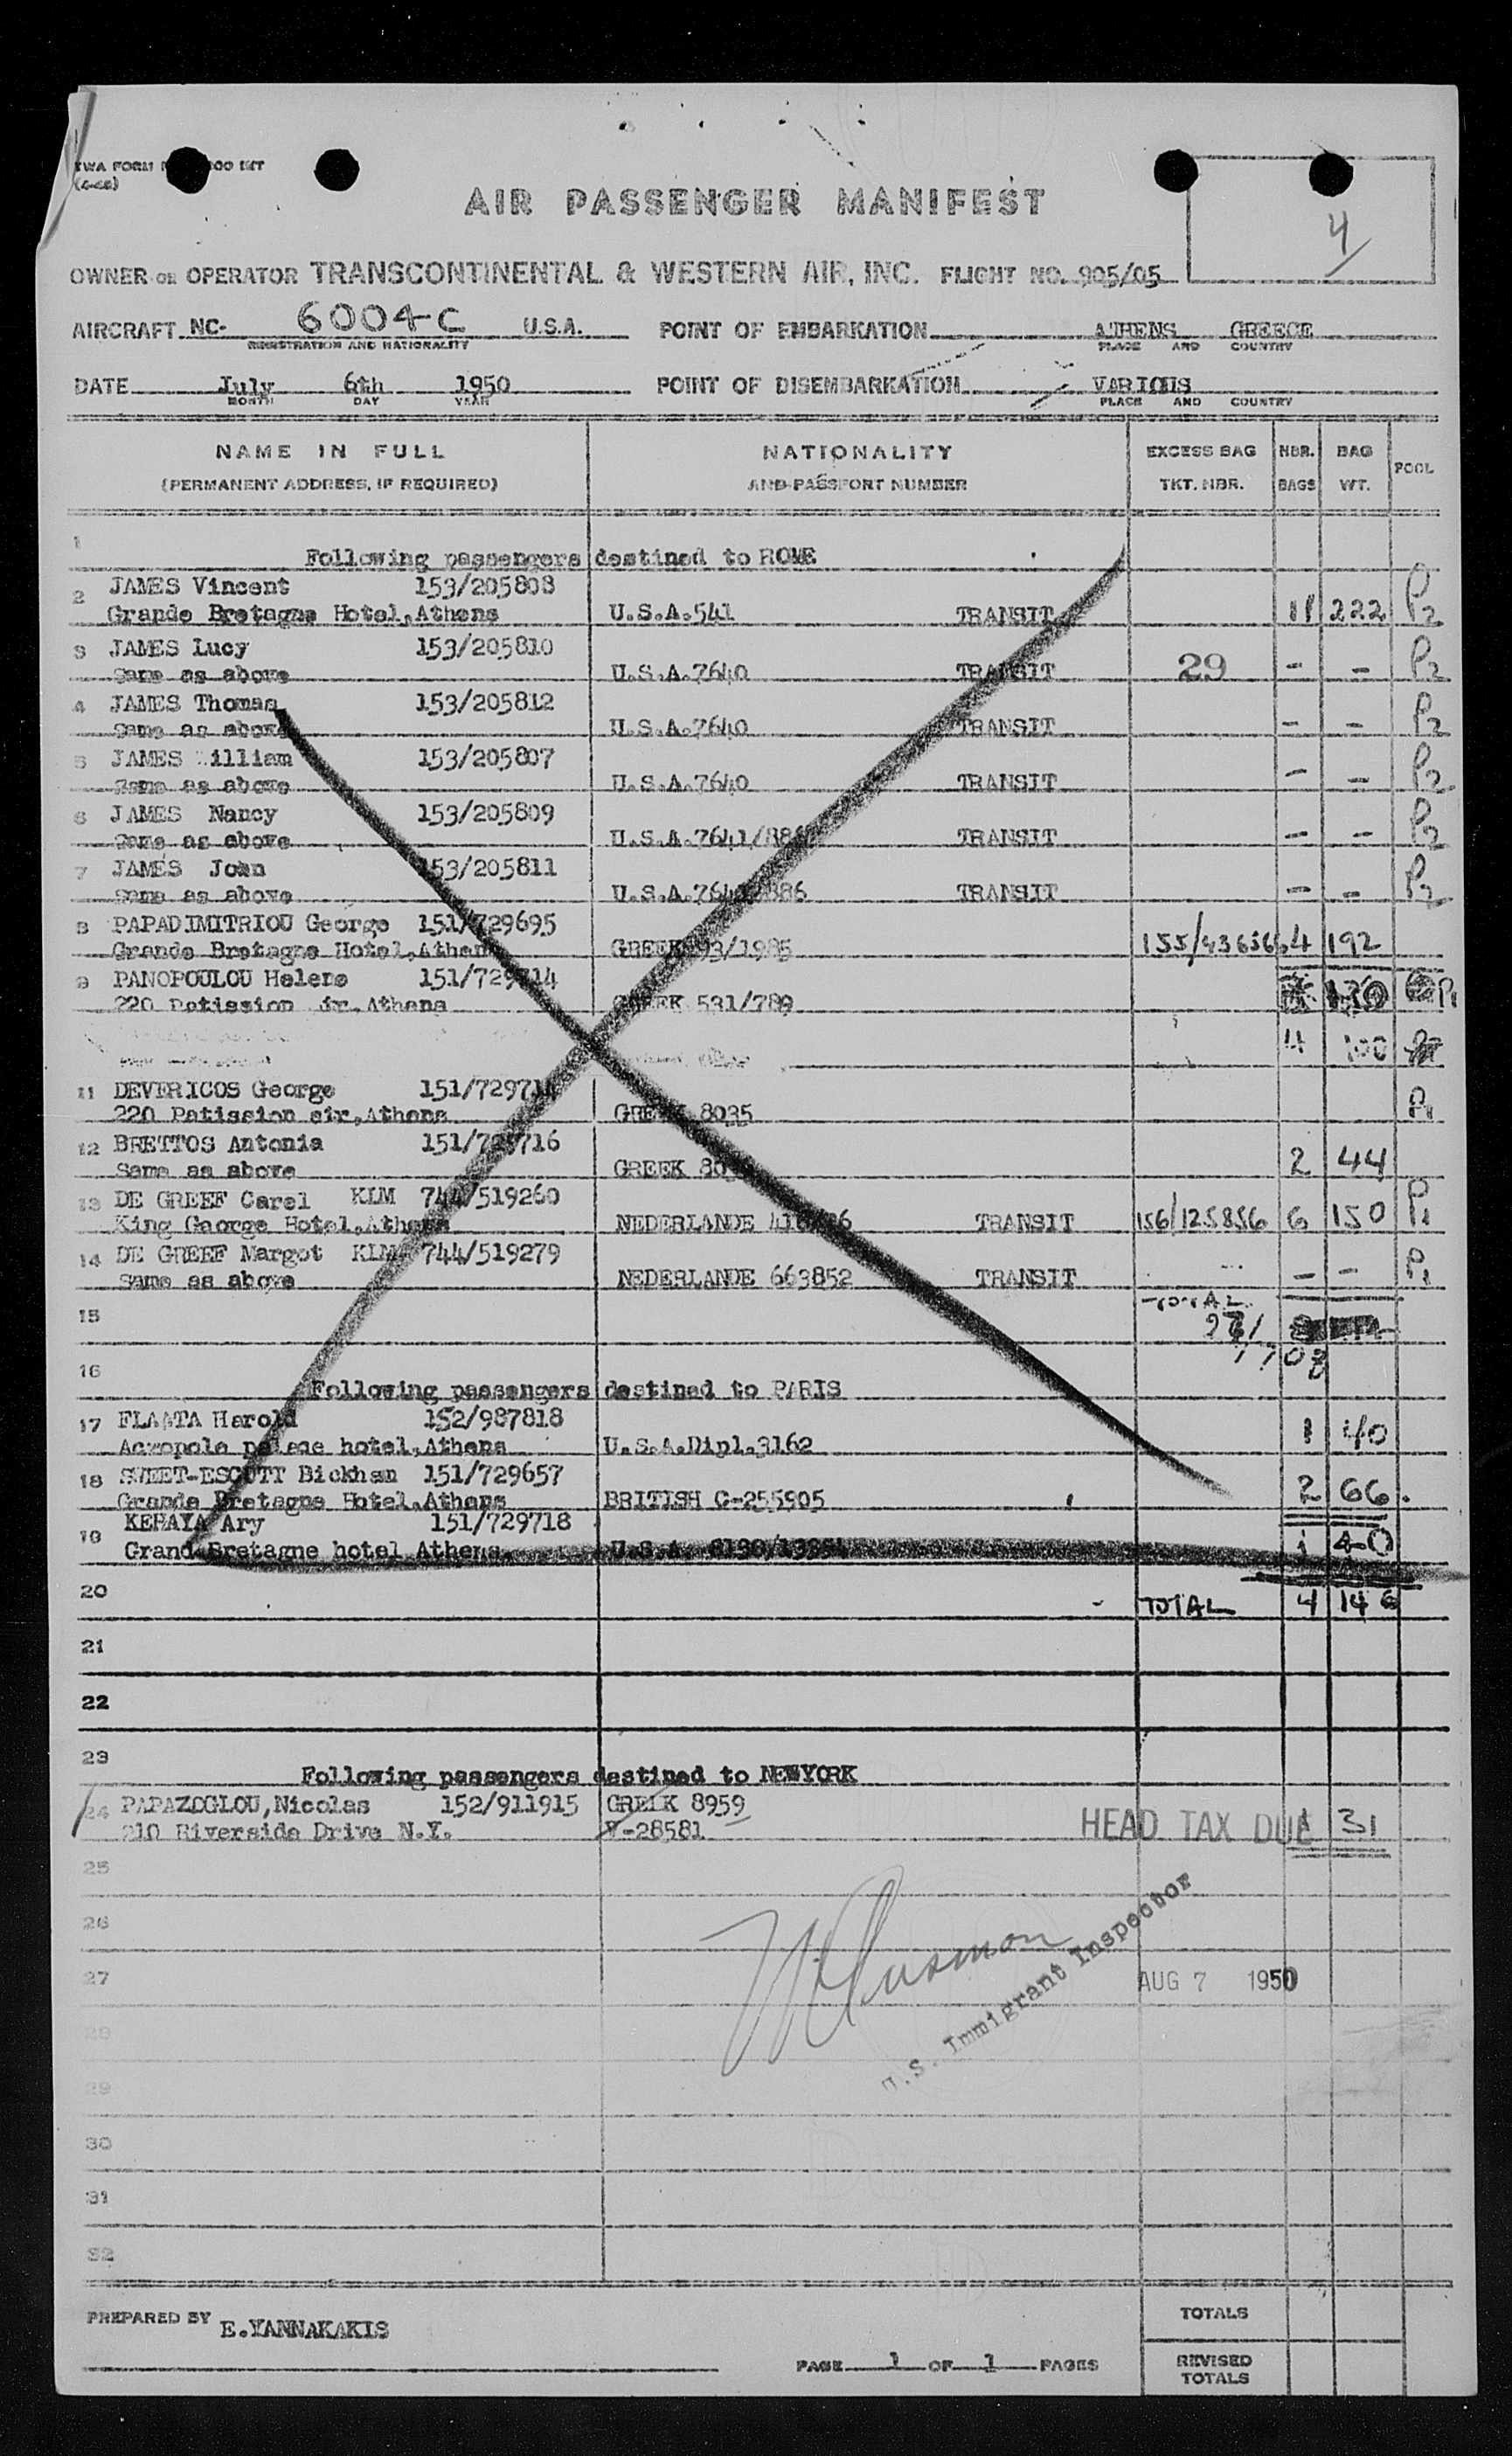 TWA FORM
AIR PASSENGER MANIFEST
4
OWNER OR OPERATOR TRANSCONTINENTAL & WESTERN AIR, INC. FLIGHT NO. 905/05
AIRCRAFT NC- 6004-C U.S.A. POINT OF EMBARKATION ATHENS GREECE
REGISTRATION AND NATIONALITY PLACE AND COUNTRY
DATE July 6th 1950 POINT OF DISEMBARKATION VARIOUS
MONTH DAY YEAR PLACE AND COUNTRY
NAME IN FULL NATIONALITY EXCESS BAG NBR. BAG POOL
(PERMANENT ADDRESS, IF REQUIRED) AND PASSPORT NUMBER TKT. NBR. BAGS WT.
1
Following passengers destined to ROME
2 JAMES Vincent 153/205808
Grande Bretagne Hotel,Athens U.S.A.541 TRANSIT 11 222 P2
3 JAMES Lucy 153/205810
Same as above U.S.A.7640 TRANSIT 29 - - P2
4 JAMES Thomas 153/205812
Same as above U.S.A.7640 TRANSIT - - P2
5 JAMES William 153/205807
Same as above U.S.A.7640 TRANSIT - - P2
6 JAMES Nancy 153/205809
Same as above U.S.A.7641/886 TRANSIT - - P2
7 JAMES Joan 153/205811
Same as above U.S.A. TRANSIT - - P2
8 PAPADIMITRIOU George 151/729695
Grande Bretagne Hotel,Athens GREEK 4 192
9 PANOPOULOU Helene 151/729714
220 Patission str,Athens GREEK 531/789 P1
4 100
11 DEVERICOS George
220 Patission str,Athens GREEK 8035 P1
12 BRETTOS Antonia 151/729716
Same as above GREEK 2 44
13 DE GREEF Carel KLM 744/519260
King George Hotel,Athens NEDERLANDE TRANSIT 156/125856 6 150 P1
14 DE GREEF Margot KLM 744/519279
Same as above NEDERLANDE 663852 TRANSIT - - P1
15 TOTAL
16
Following passengers destined to PARIS
17 Harold 152/987818
Acropole palace hotel,Athens U.S.A.Dipl.3162 1 40
18 SWEET-ESCOTT Bickham 151/729657
Grande Bretagne Hotel,Athens BRITISH C-255905 2 66.
19 KEHAYA Ary 151/729718
Grand Bretagne hotel Athens. U.S.A. 1 40
20 - TOTAL 4 146
21
22
23
Following passengers destined to NEWYORK
24 PAPAZOGLOU,Nicolas 152/911915 GREEK 8959
210 Riverside Drive N.Y. V-28581 HEAD TAX DUE 1 31
25
26
27
U.S. Immigrant Inspector
AUG 7 1950
28
29
30
31
32
PREPARED BY E.YANNAKAKIS TOTALS
PAGE 1 OF 1 PAGES REVISED TOTALS